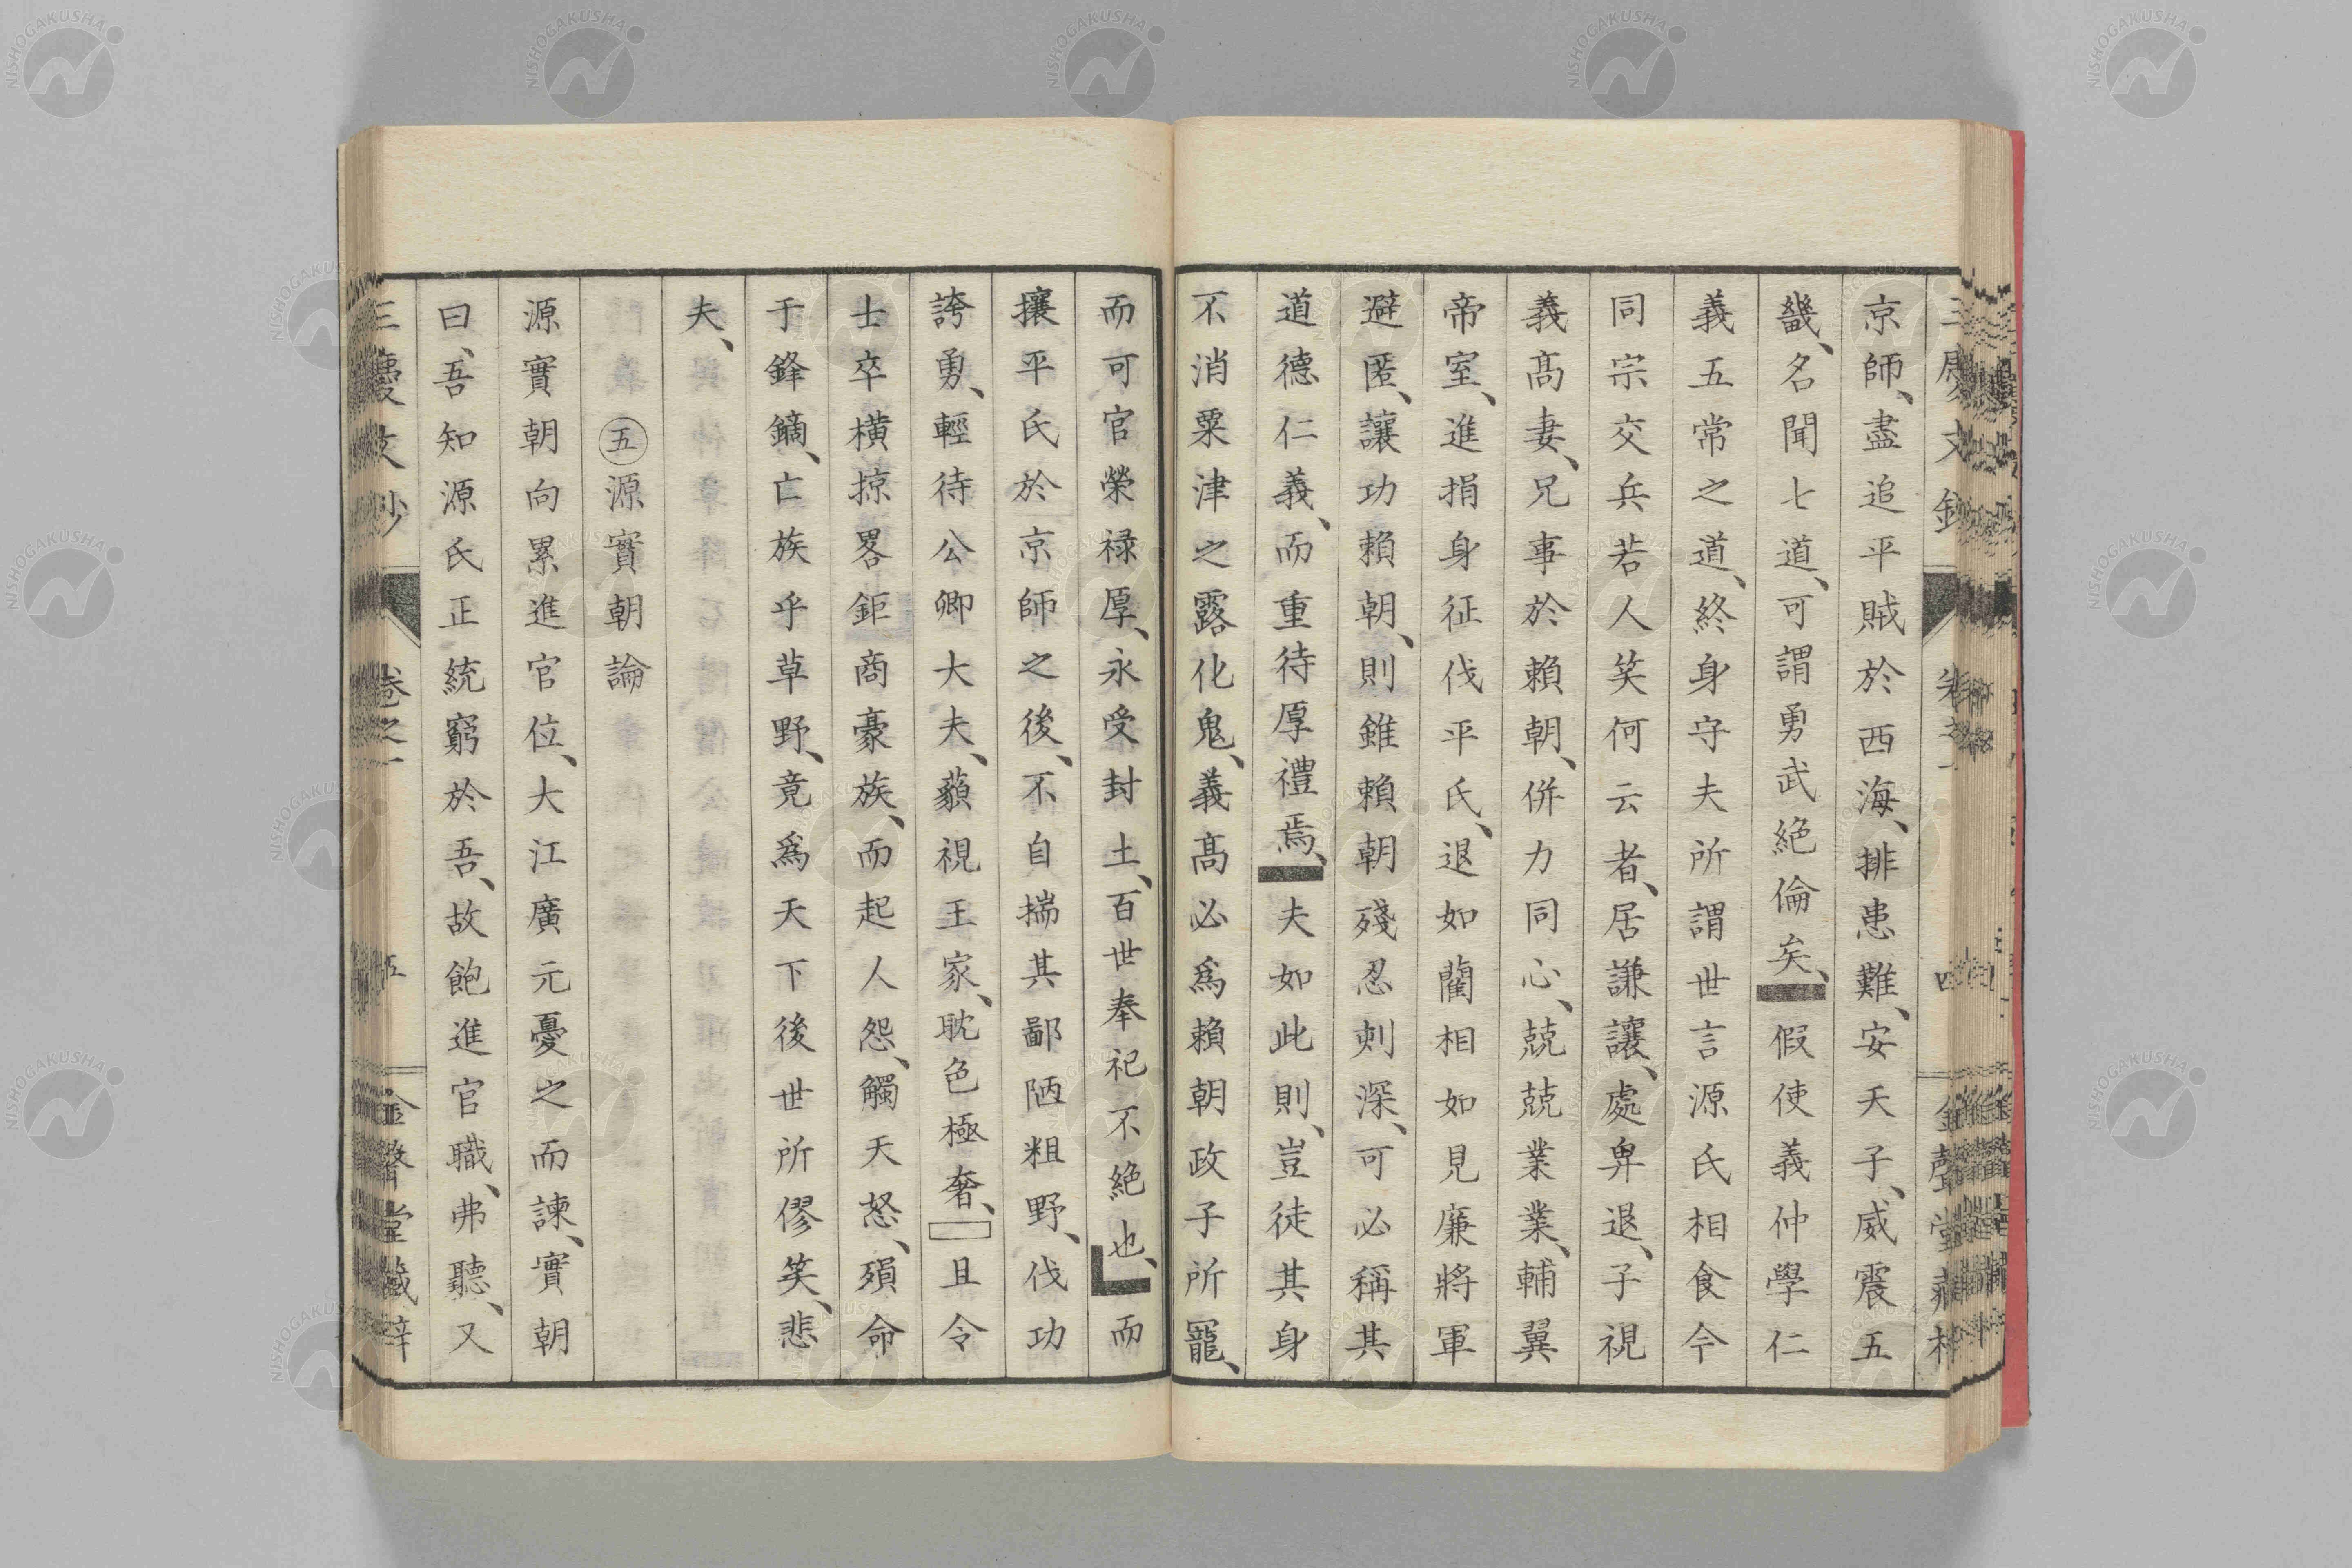 京師、盡追平賊於西海、排患難、安天子、威震五
畿、名聞七道、可謂勇武絕倫矣、假使義仲學仁
義五常之道、終身守夫所謂世言源氏相食今
同宗交兵若人笑何云者、居謙讓、處卑退、子視
義髙妻、兄事於賴朝、併力同心、兢兢業業、輔翼
帝室、進捐身征伐平氏、退如藺相如見廉將軍
避匿、讓功賴朝、則雖賴朝殘忍刺深、可必稱其
道德仁義、而重待厚禮焉、夫如此則、豈徒其身
不消粟津之露化鬼、義髙必爲賴朝政子所寵、
而可官榮祿厚、永受封土、百世奉祀不絕也、而
攘平氏於京師之後、不自揣其鄙陋粗野、伐功
誇勇、輕待公卿大夫、藐視王家、耽色極奢、且令
士卒橫掠畧鉅商豪族、而起人怨、觸天怒、殞命
于鋒鏑、亡族乎草野、竟爲天下後世所僇笑、悲
夫、
五源實朝論
源實朝向累進官位、大江廣元憂之而諫、實朝
曰、吾知源氏正統窮於吾、故飽進官職、弗聽、又
三慶文鈔 卷之一 五 金聲堂藏梓
NISHOGAKUSHA